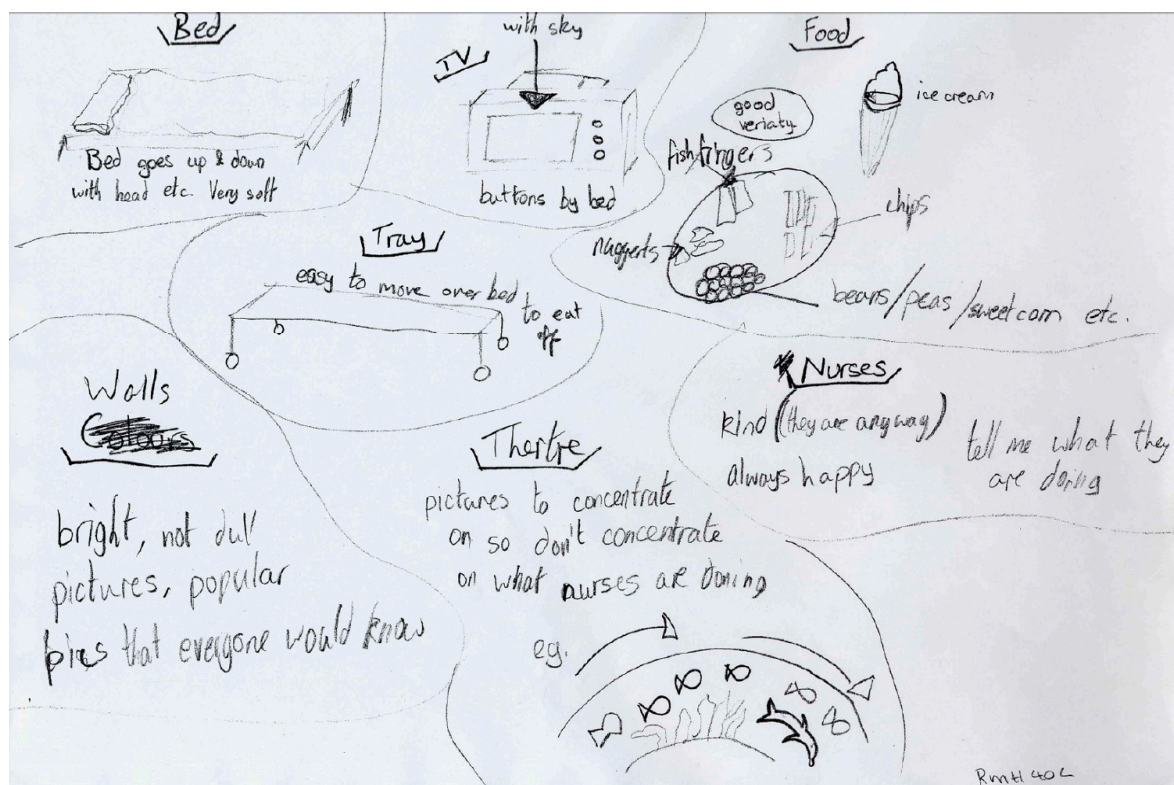 Bed
Bed goes up & down
with head etc. Very soft
with sky
TV
buttons by bed
Food
ice cream
good
veriaty
fish fingers
chips
nuggerts
beans/peas/sweetcorn etc.
Tray
easy to move over bed
to eat
off
Walls
Colours
bright, not dull
pictures, popular
pics that everyone would know
Thertre
pictures to concentrate
on so don't concentrate
on what nurses are doning
eg.
Nurses
kind (they are anyway)
always happy
tell me what they
are doring